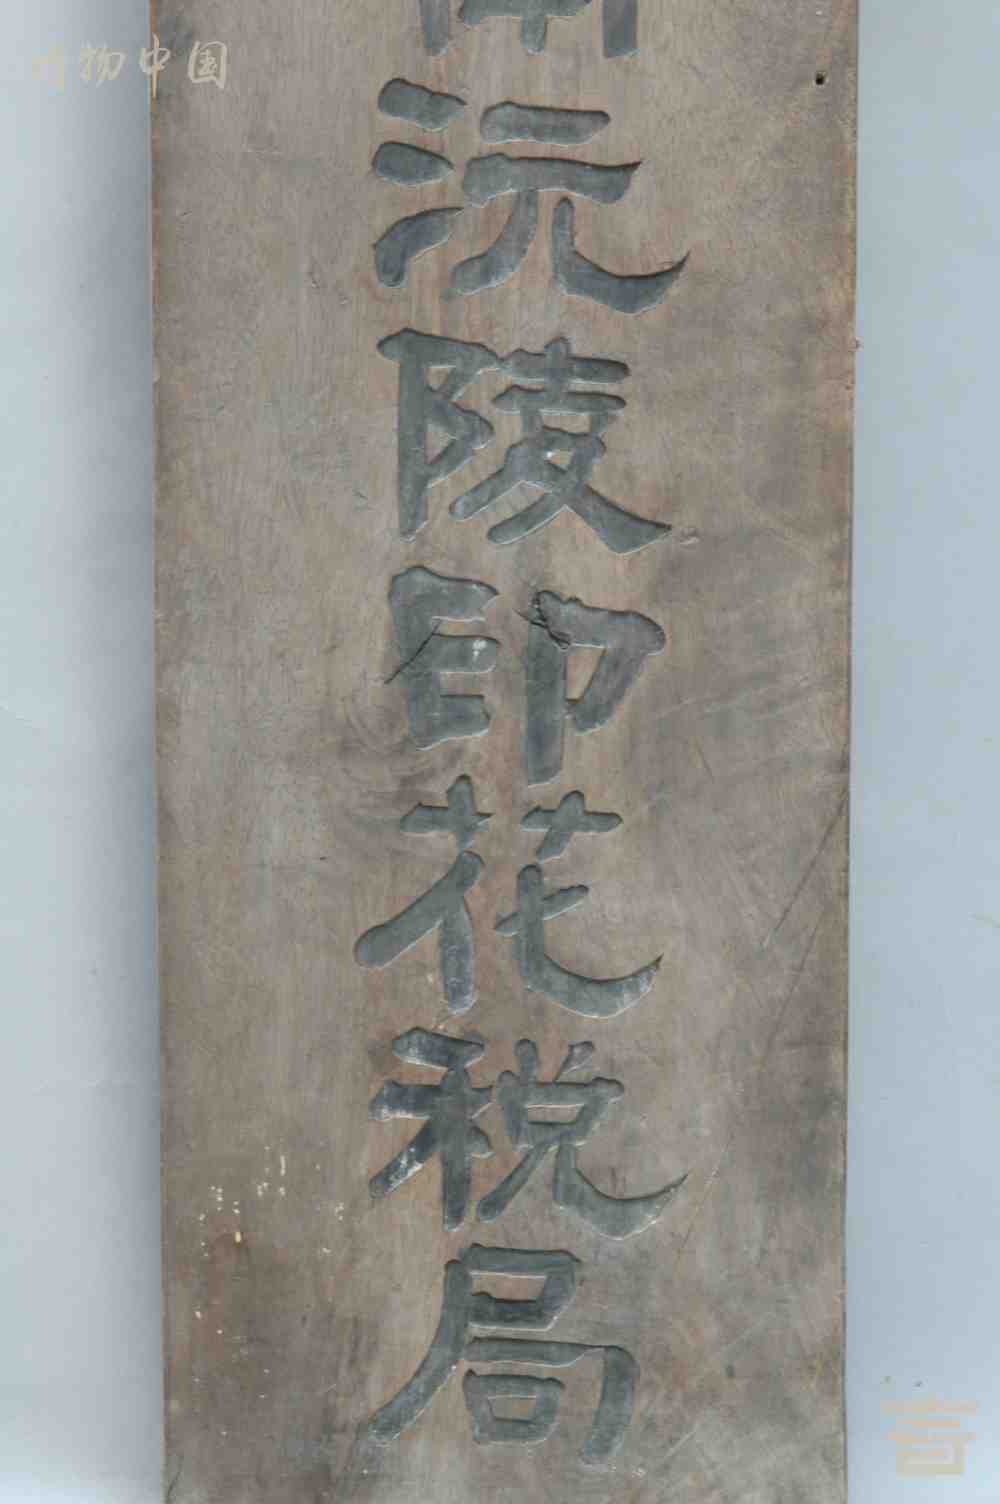 博物中国
南沅陵印花税局